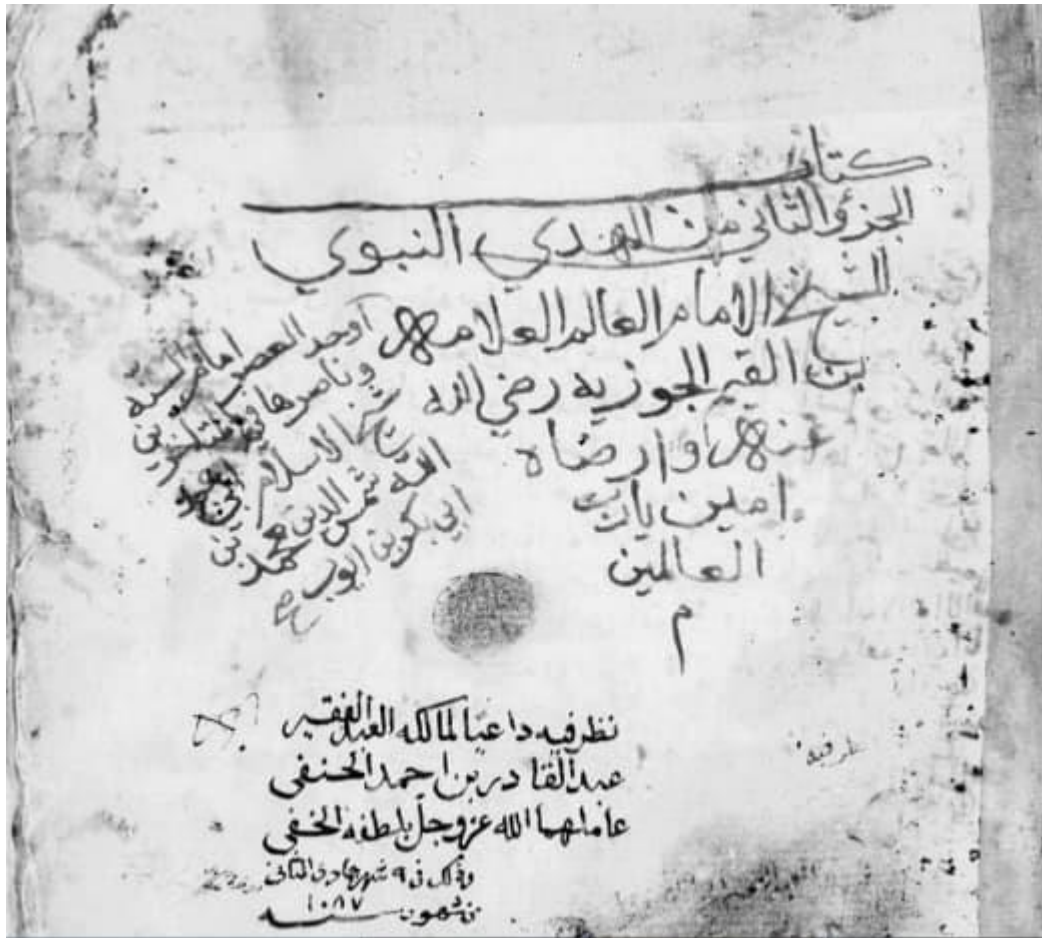 كتاب
الجزؤ الثاني من الهدي النبوي
للشيخ الامام العالم العلامه
بن القيم الجوزيه رضي الله
عنه وارضاه
امين يارب
العالمين
م
اوحد العصر امام السنه
وناصرها
الاسلام
شمس الدين محمد بن
ابي بكر بن ايوب
نظر فيه داعيا لمالكه العبد الفقير
عبد القادر بن احمد الحنفي
عاملهما الله عز وجل بلطفه الخفي
وذلك في ٩ شهر جمادى الثاني
من شهور سنه ١٠٨٧
نظر فيه